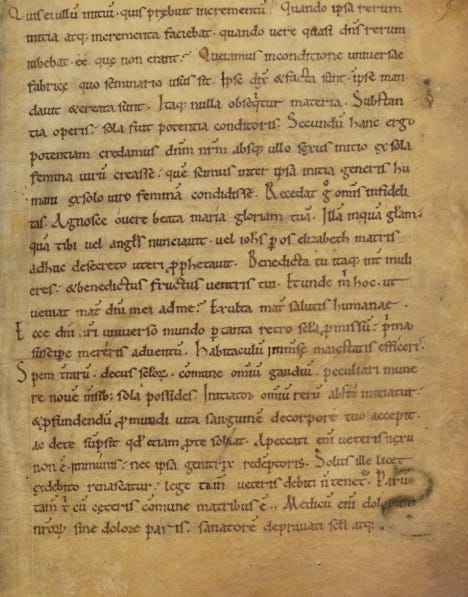 Quis ei ullū initiū. quis p̄buit incrementū? Quando ipsa rerum
initia atq; incrementa faciebat. quando vere quasi dn̄s rerum
iubebat. ēē. quę non erant? Queramus in conditione universae
fabricę quo seminario usus sit. Ipse dix̄ & facta sunt. ipse man
davit & creata sunt. Itaq; nulla obseq̄tur materia. Substan
tia operis. sola fuit potentia conditoris. Secundū hanc ergo
potentiam credamus dn̄m nr̄m absq; ullo sexus initio ex sola
femina virū creasse: quē scimus inter ipsa initia generis hu
mani ex solo viro feminā condidisse. Recedat g̊ omīs infideli
tas. Agnosce o vere beata maria gloriam tuā. Illā inquā glām.
quā tibi vel angłs nunciavit. vel ioħs p̱ os elizabeth matris
adhuc de secreto uteri ꝓphetavit. Benedicta tu itaq; int̄ muli
eres: & benedictus fructus ventris tui. Et unde m̄ hoc. ut
veniat mat̄ dn̄i mei ad me? Exulta mat̄ salutis humanae.
Ecce dn̄i nr̄i universo mundo p̱ tanta retro sełła ꝓmissū: p̄ma
suscipe mereris adventū. Habitaculū inm̄se maiestatis efficeris.
Spem t̄rarū. decus sełłoꝝ. cōmune omiū gaudiū. peculiari mune
re novē m̄sib; sola possides. Initiator omiū rerū abs te initiatur:
& ꝓfundendū ꝓ mundi vita sanguinē de corpore tuo accepit.
ac de te sūpsit qđ etiam ꝓ te solvat. A peccati eni veteris nexu
non ē īmunis: nec ipsa genit̄x redēptoris. Solus ille licet
ex debito renascatur: lege tam̄ veteris debiti n̄ tenet̄. Parū
tam̄ cū ceteris cōmune matribus ē. Medicū eni
sine dolore paris. sanatorē depravati sełłi atq;